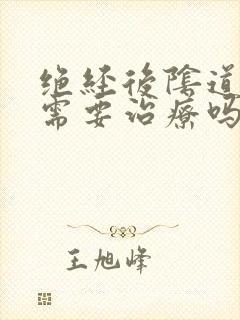 绝经後陰道
需要治療吗
王旭峰